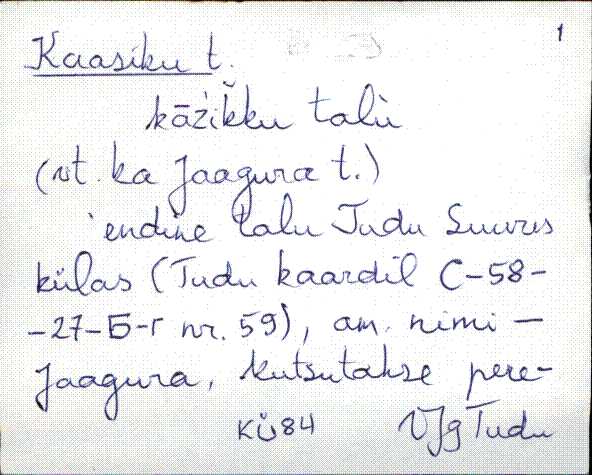 1
Kaasiku t.
kāžik̆ku talù
(vt. ka Jaagura t.)
'endine talu Tudu Suures
külas (Tudu kaardil C-58-
-27-Б-г nr. 59), am. nimi —
Jaagura, kutsutakse pere-
KÜ84 VJg Tudu